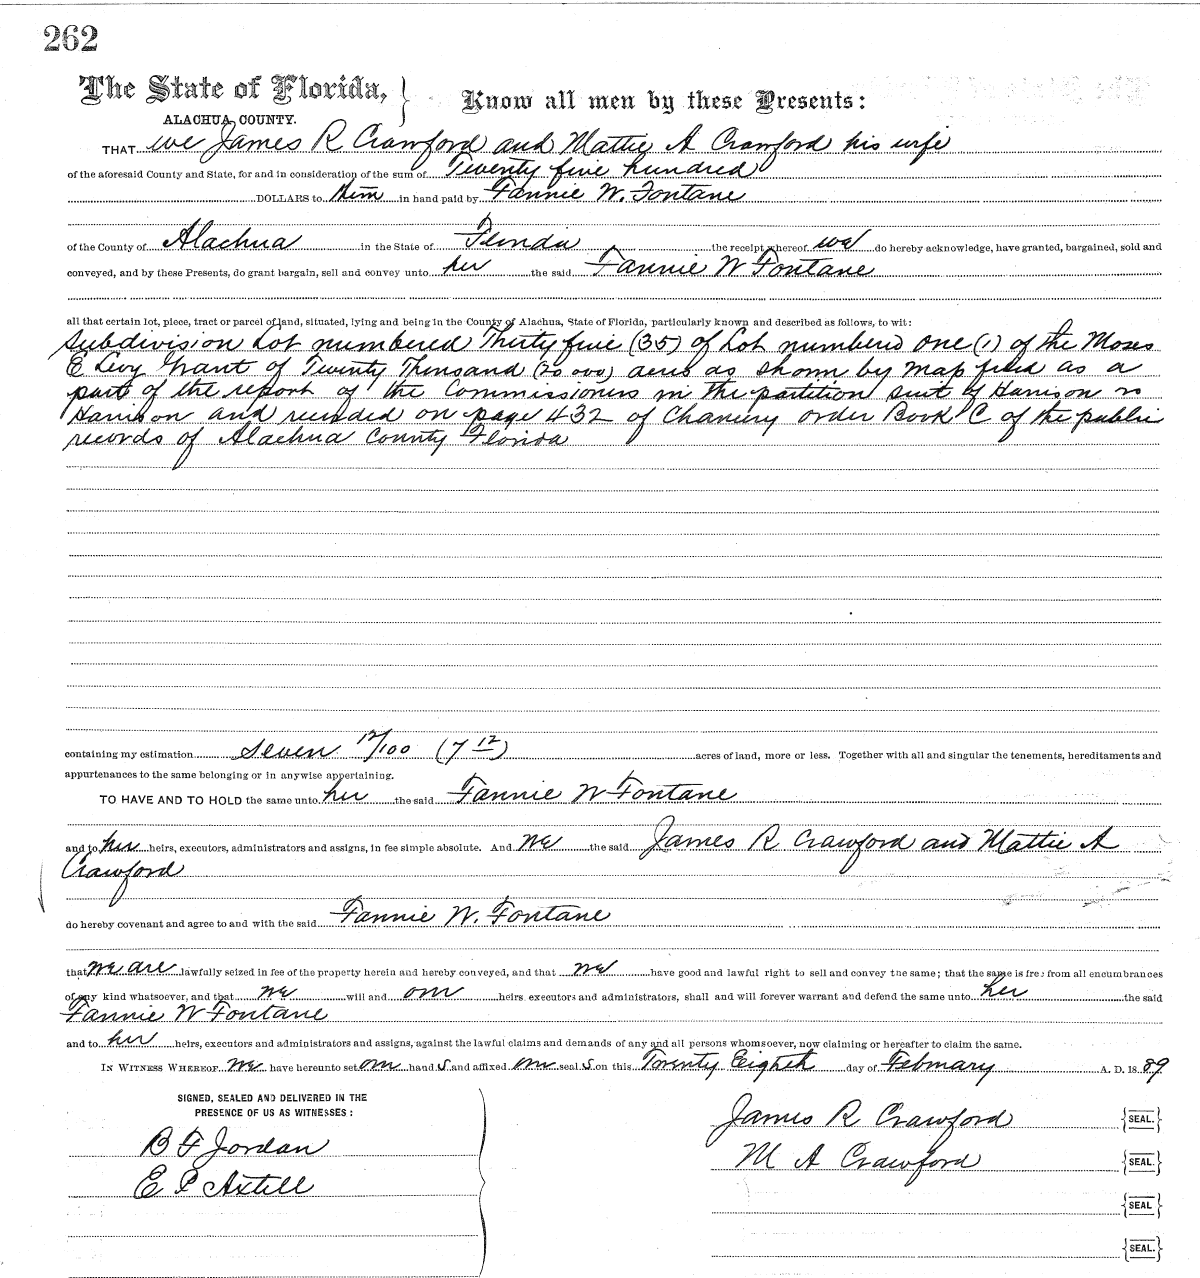 262
The State of Florida, } Know all men by these Presents:
ALACHUA COUNTY.
THAT we James R Crawford and Mattie A Crawford his wife
of the aforesaid County and State, for and in consideration of the sum of Twenty five hundred
DOLLARS to him in hand paid by Fannie W. Fontane
of the County of Alachua in the State of Florida the receipt whereof we do hereby acknowledge, have granted, bargained, sold and
conveyed, and by these Presents, do grant bargain, sell and convey unto her the said Fannie W Fontane
all that certain lot, piece, tract or parcel of land, situated, lying and being in the County of Alachua, State of Florida, particularly known and described as follows, to wit:
Subdivision Lot numbered Thirty five (35) of Lot numbered One (1) of the Moses
E Levy Grant of Twenty Thousand (20 000) acres as shown by Map filed as a
part of the report of the Commissioners in the partition suit of Harrison vs
Harrison and recorded on page 432 of Chancery Order Book C of the public
records of Alachua County Florida
containing my estimation seven 12/100 (7 12) acres of land, more or less. Together with all and singular the tenements, hereditaments and
appurtenances to the same belonging or in anywise appertaining.
TO HAVE AND TO HOLD the same unto her the said Fannie W Fontane
and to her heirs, executors, administrators and assigns, in fee simple absolute. And we the said James R Crawford and Mattie A
Crawford
do hereby covenant and agree to and with the said Fannie W. Fontane
that we are lawfully seized in fee of the property herein and hereby conveyed, and that we have good and lawful right to sell and convey the same; that the same is free from all encumbrances
of any kind whatsoever, and that we will and our heirs executors and administrators, shall and will forever warrant and defend the same unto her the said
Fannie W Fontane
and to her heirs, executors and administrators and assigns, against the lawful claims and demands of any and all persons whomsoever, now claiming or hereafter to claim the same.
IN WITNESS WHEREOF we have hereunto set our hand s and affixed our seal s on this Twenty Eighth day of February A. D. 18 89
SIGNED, SEALED AND DELIVERED IN THE
PRESENCE OF US AS WITNESSES:
James R Crawford {SEAL.}
B F Jordan
M A Crawford {SEAL.}
E P Axtell
{SEAL}
{SEAL.}